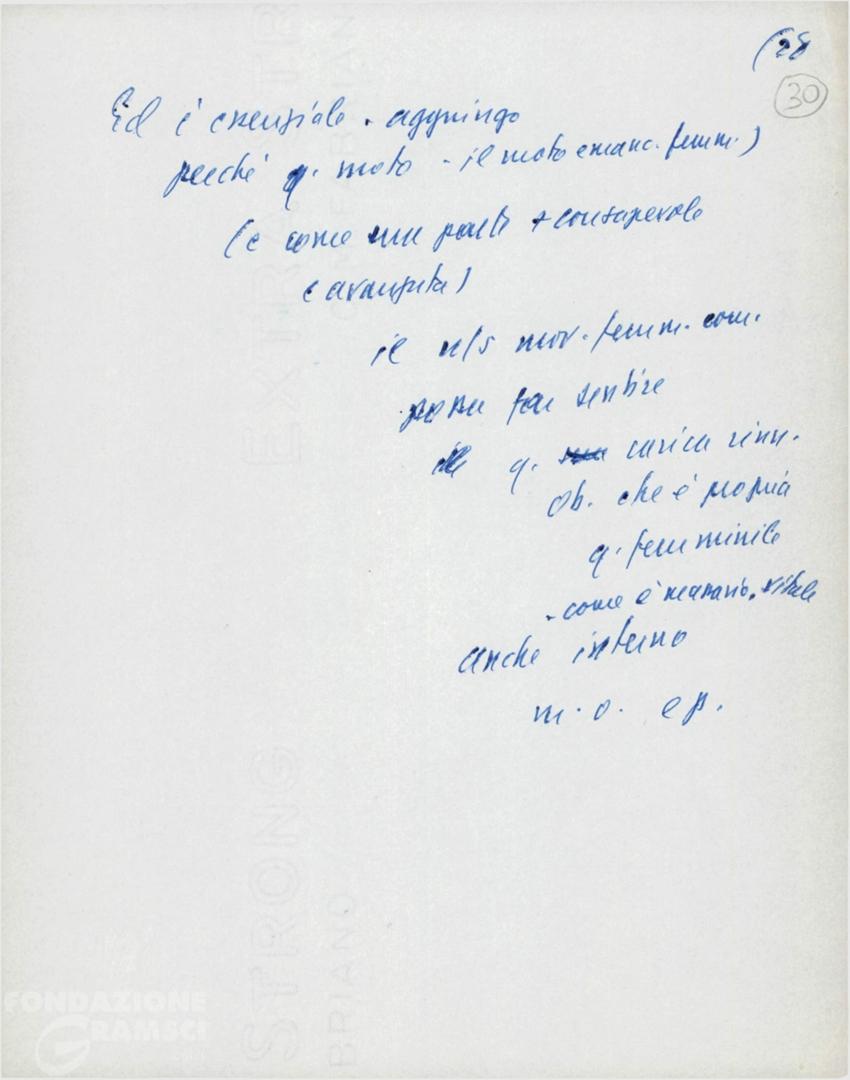 (28
30
Ed è essenziale - aggiungo
perché q. moto - il moto emanc. femm.)
(e come sua parte + consapevole
e avanzata)
il n/s mov. femm. com.
possa far sentire
q. carica rinn.
che è propria
q. femminile
- come è necessario, vitale
anche interno
m. o. e p.
EXTRA STRONG
BRIANO
FONDAZIONE
GRAMSCI